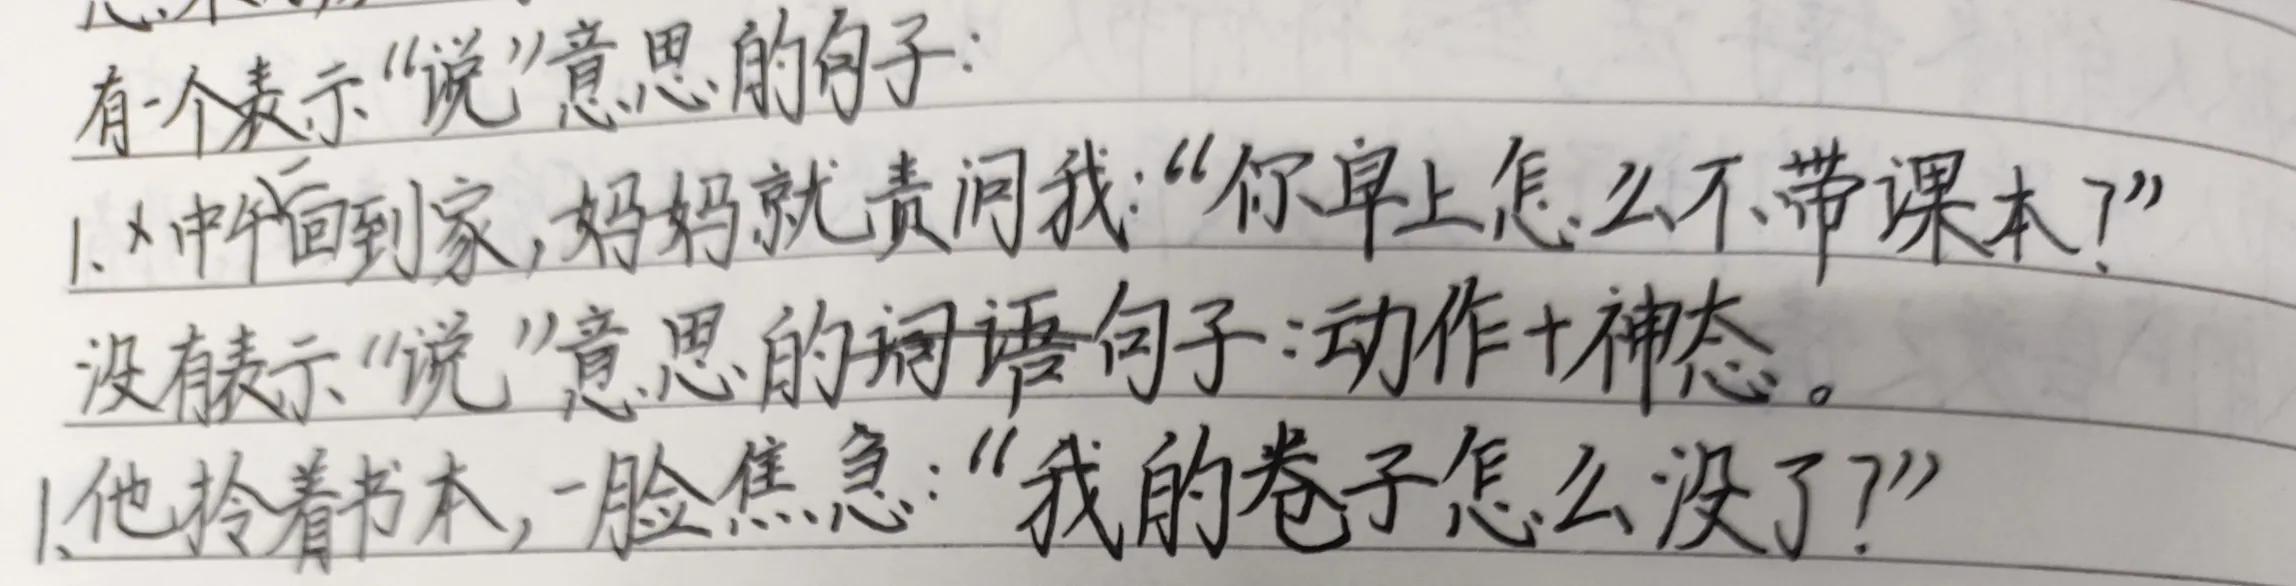 有一个表示“说”意思的句子：
1. 中午回到家，妈妈就责问我：“你早上怎么不带课本？”
没有表示“说”意思的词语句子：动作+神态。
1.他拎着书本，一脸焦急：“我的卷子怎么没了？”